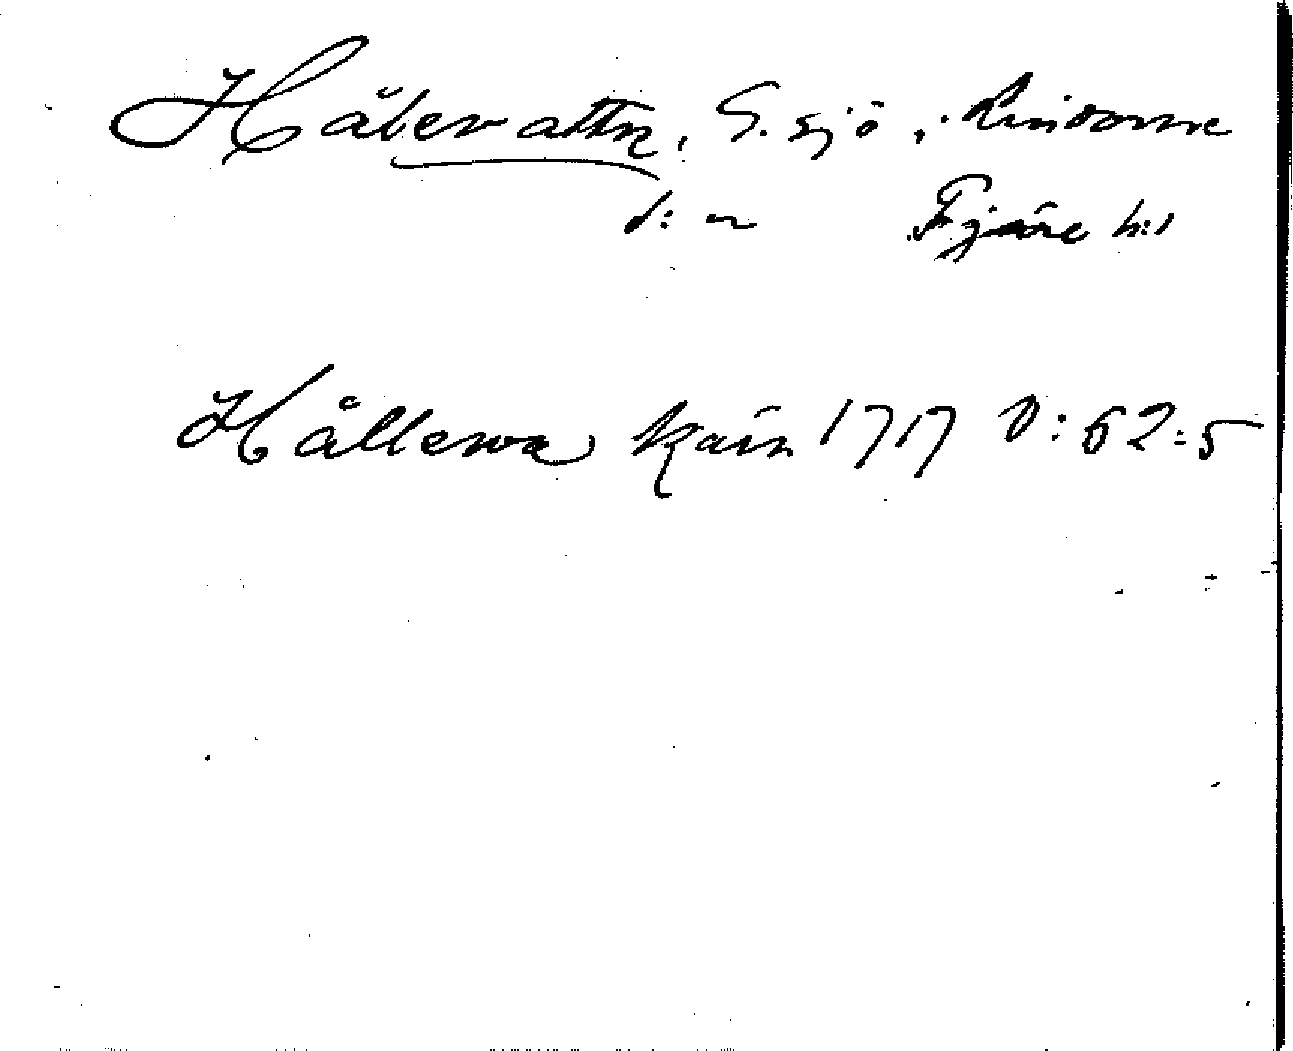 Hålevattn, S. sjö, Lindome
d:o Fjäre h:d
Hållewa kärn 1717 D:62:5